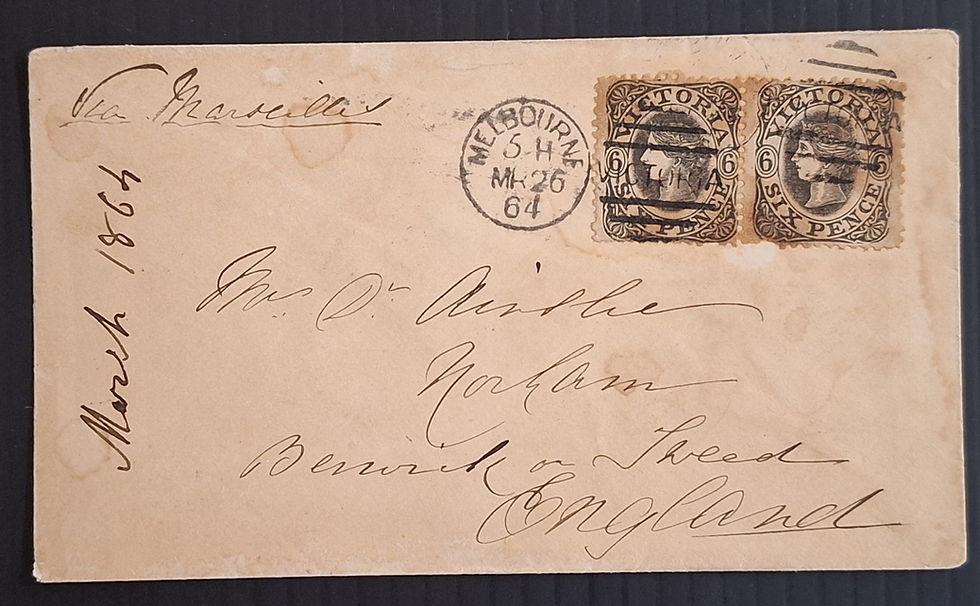 Via Marseilles
March 1864
MELBOURNE
5 H
MR 26
64
VICTORIA
6 6
SIX PENCE
VICTORIA
6 6
SIX PENCE
VICTORIA
Mrs Dr Ainslie
Norham
Berwick on Tweed
England